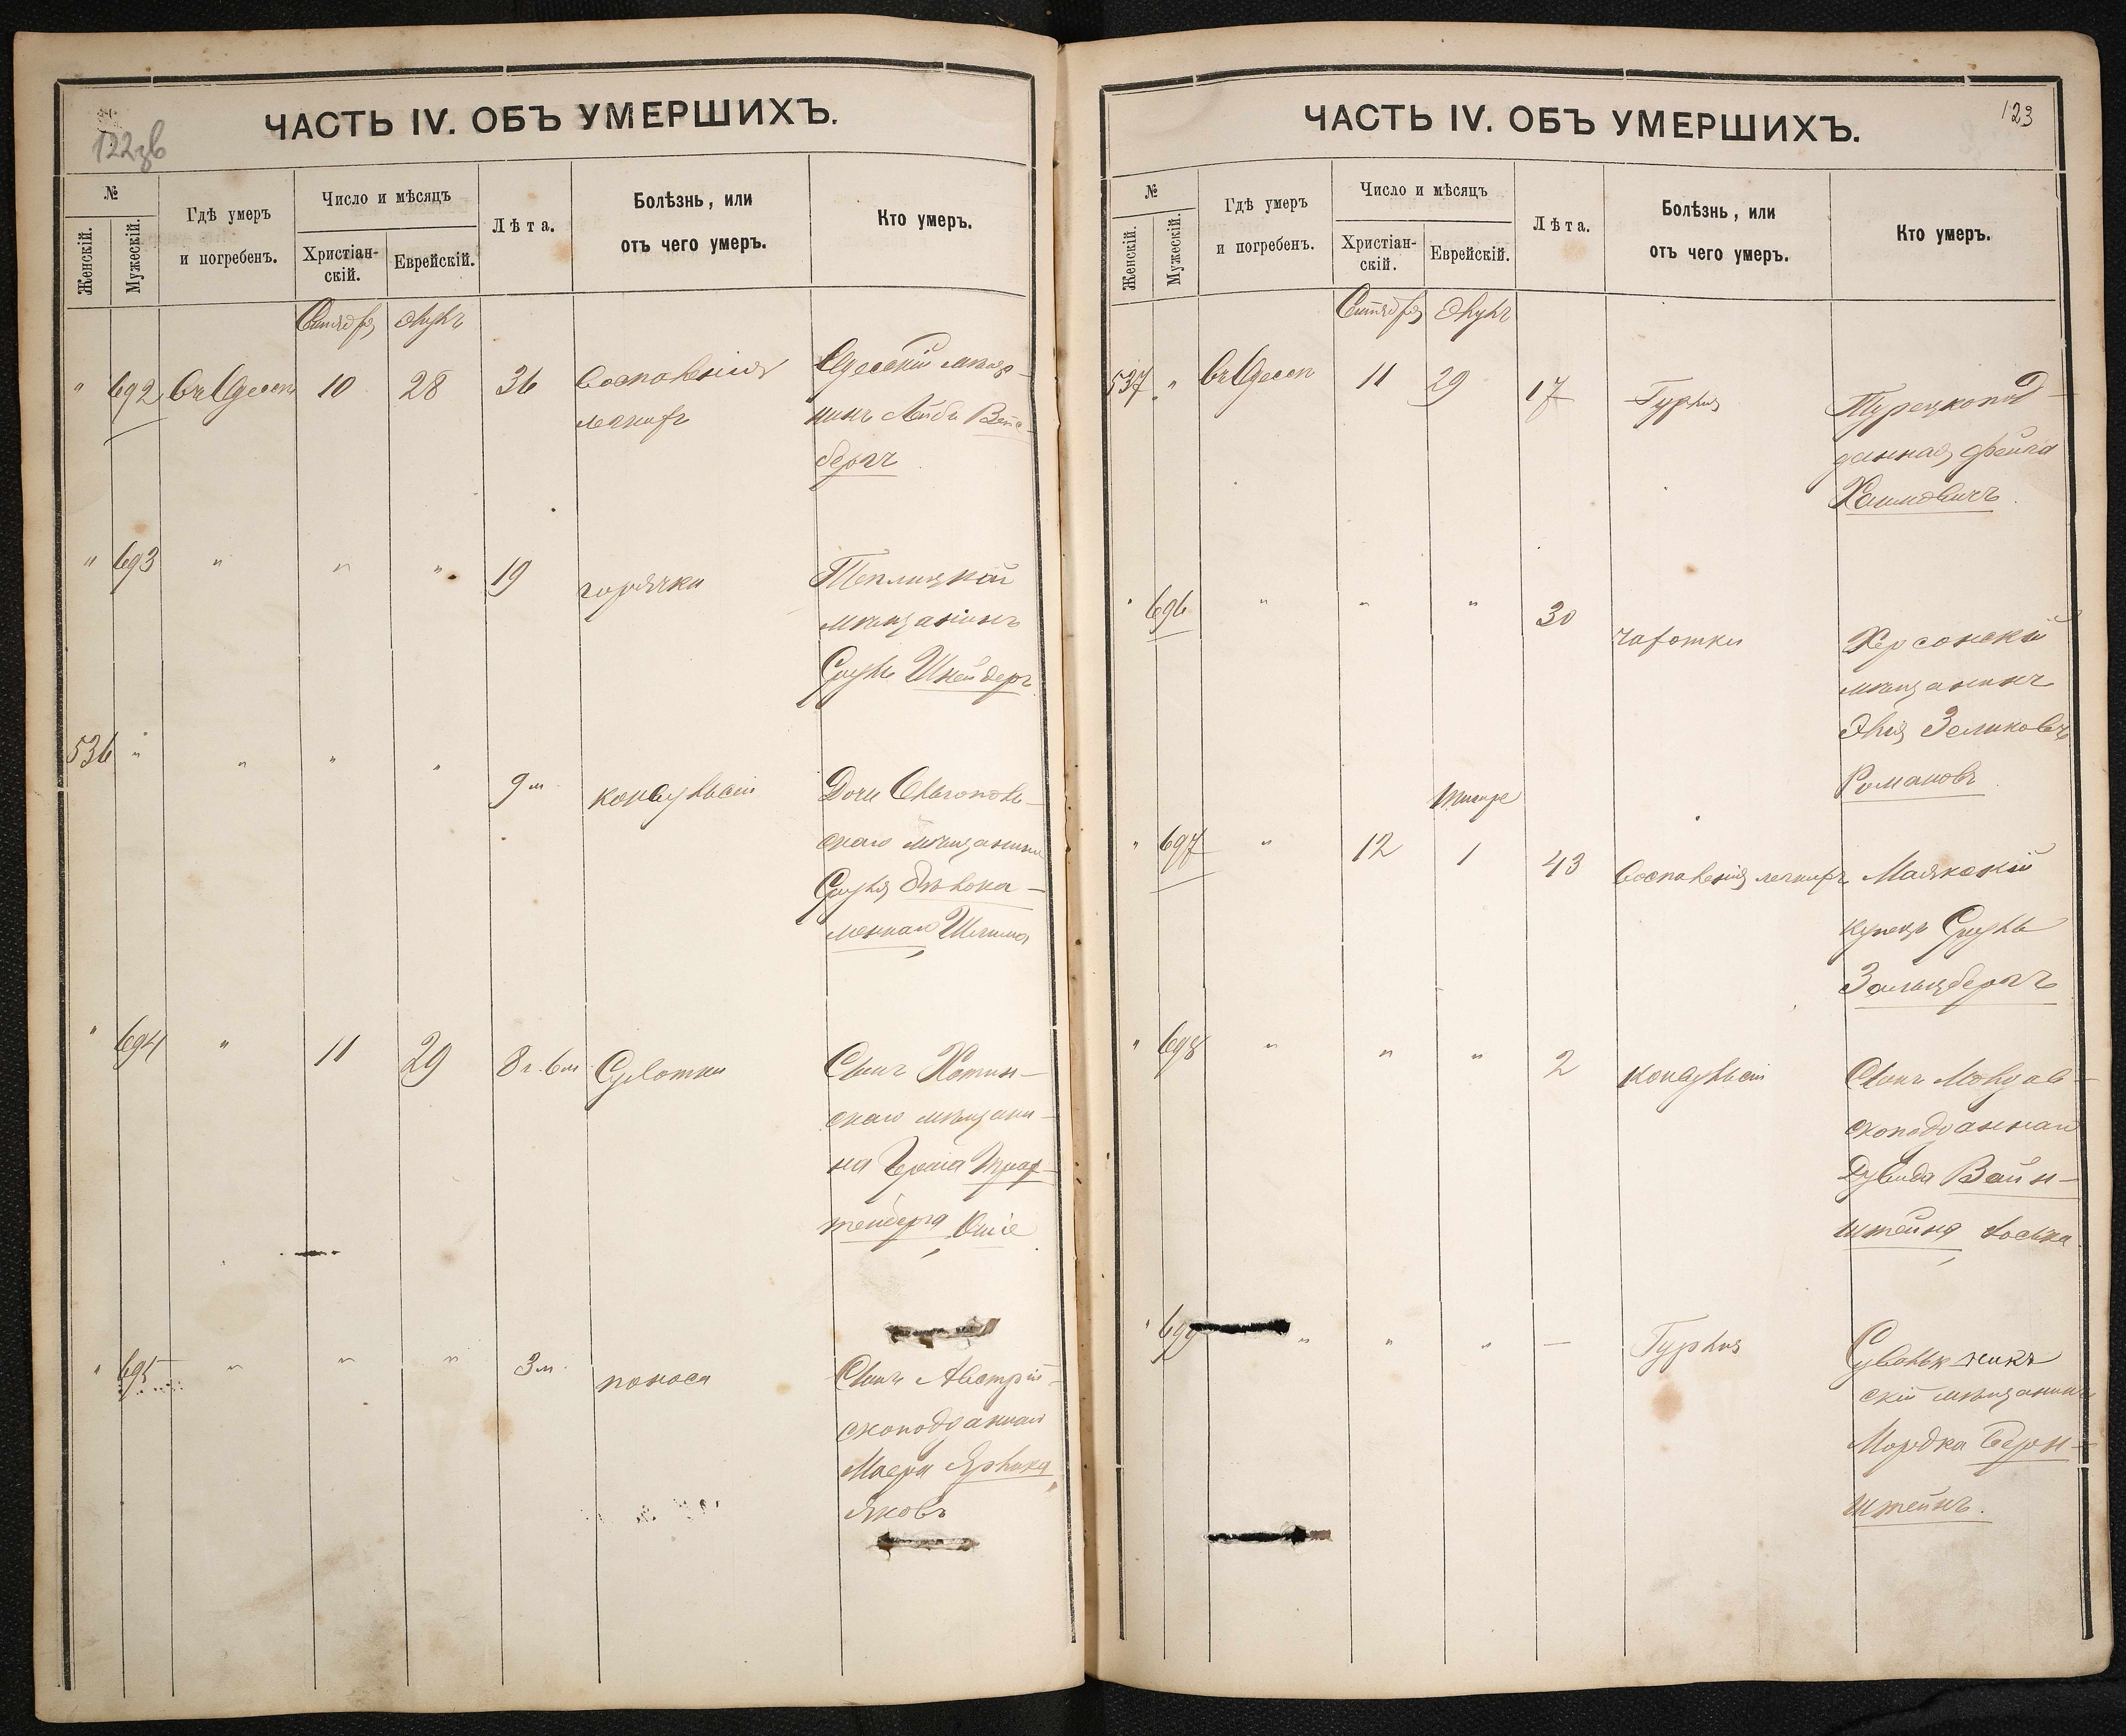 122зв
ЧАСТЬ IV. ОБЪ УМЕРШИХЪ.
№
Женскій.
Мужескій.
Гдѣ умеръ
и погребенъ.
Число и мѣсяцъ
Христіан-
скій.
Еврейскій.
Лѣта.
Болѣзнь, или
отъ чего умеръ.
Кто умеръ.
Сентября Элулъ
" 692 въ Одессѣ 10 28 36 Воспаленія
легкихъ
Одесскій мѣща-
нинъ Лейбъ Вейс-
бергъ
" 693 " " " 19 горячки
Теплицкій
мѣщанинъ
Сруль Шнейдеръ
536 " " " " 9 м конвульсіи
Дочь
скаго мѣщанина
Сруля
Шлима
" 694 " 11 29 8 г. 6 м Сухотки
Сынъ Хотин-
скаго мѣщани-
на Герша
тенберга
" 695 " " " 3 м. поноса
Сынъ Австрій-
скоподданнаго
Маера
Яковъ
123
ЧАСТЬ IV. ОБЪ УМЕРШИХЪ.
№
Женскій.
Мужескій.
Гдѣ умеръ
и погребенъ.
Число и мѣсяцъ
Христіан-
скій.
Еврейскій.
Лѣта.
Болѣзнь, или
отъ чего умеръ.
Кто умеръ.
Сентября Элулъ
537 " въ Одессѣ 11 29 17
Турецкопод-
данная Фейга
Хаимовичъ
" 696 " " " 30 чахотки
Херсонскій
мѣщанинъ
Эля Зеликовъ
Романовъ
Тишре
" 697 " 12 1 43 Воспаленія легкихъ
Маякскій
купецъ Сруль
Зальцбергъ
" 698 " " " 2 конвульсіи
Сынъ Молдав-
скоподданнаго
Дувида Вайн-
штейна Іоська
" 699 " " " —
скій мѣщанинъ
Мордка Берн-
штейнъ.